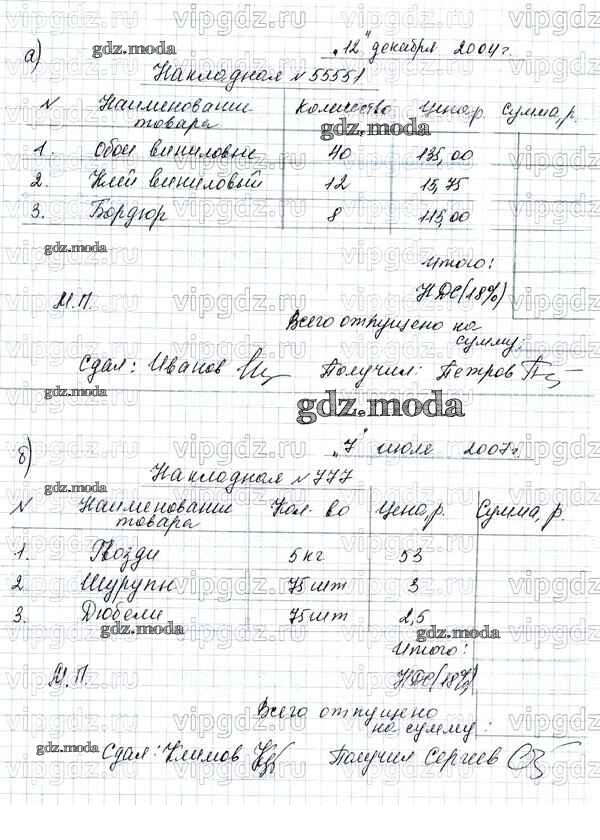 а) "12" декабря 2004 г.
Накладная № 55551
N Наименовании товара Количество Цена, р. Сумма, р.
1. Обои виниловые 40 135,00
2. Клей виниловый 12 15,75
3. Бордюр 8 115,00
Итого:
М.П. НДС (18%)
Всего отпущено на
сумму:
Сдал: Иванов Получил: Петров
gdz.moda
б) "7" июле 2007 г.
Накладная № 777
N Наименовании товара Кол-во Цена р. Сумма, р.
1. Гвозди 5 кг 53
2. Шурупы 75 шт 3
3. Дюбели 75 шт 2,5
Итого:
М.П. НДС (18%)
Всего отпущено
на сумму:
Сдал: Климов Получил Сергеев